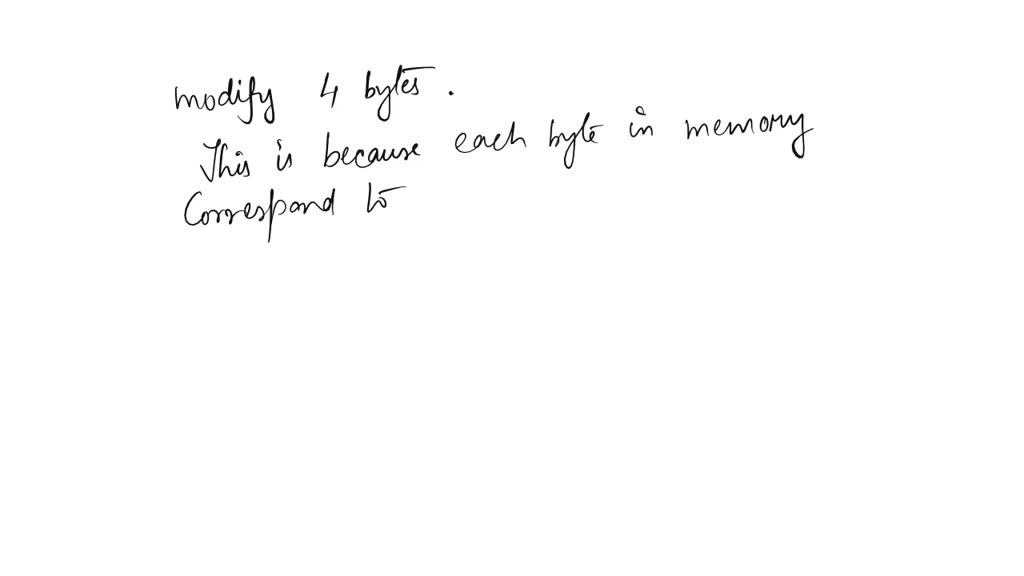 modify 4 bytes.
This is because each byte in memory
Correspond to